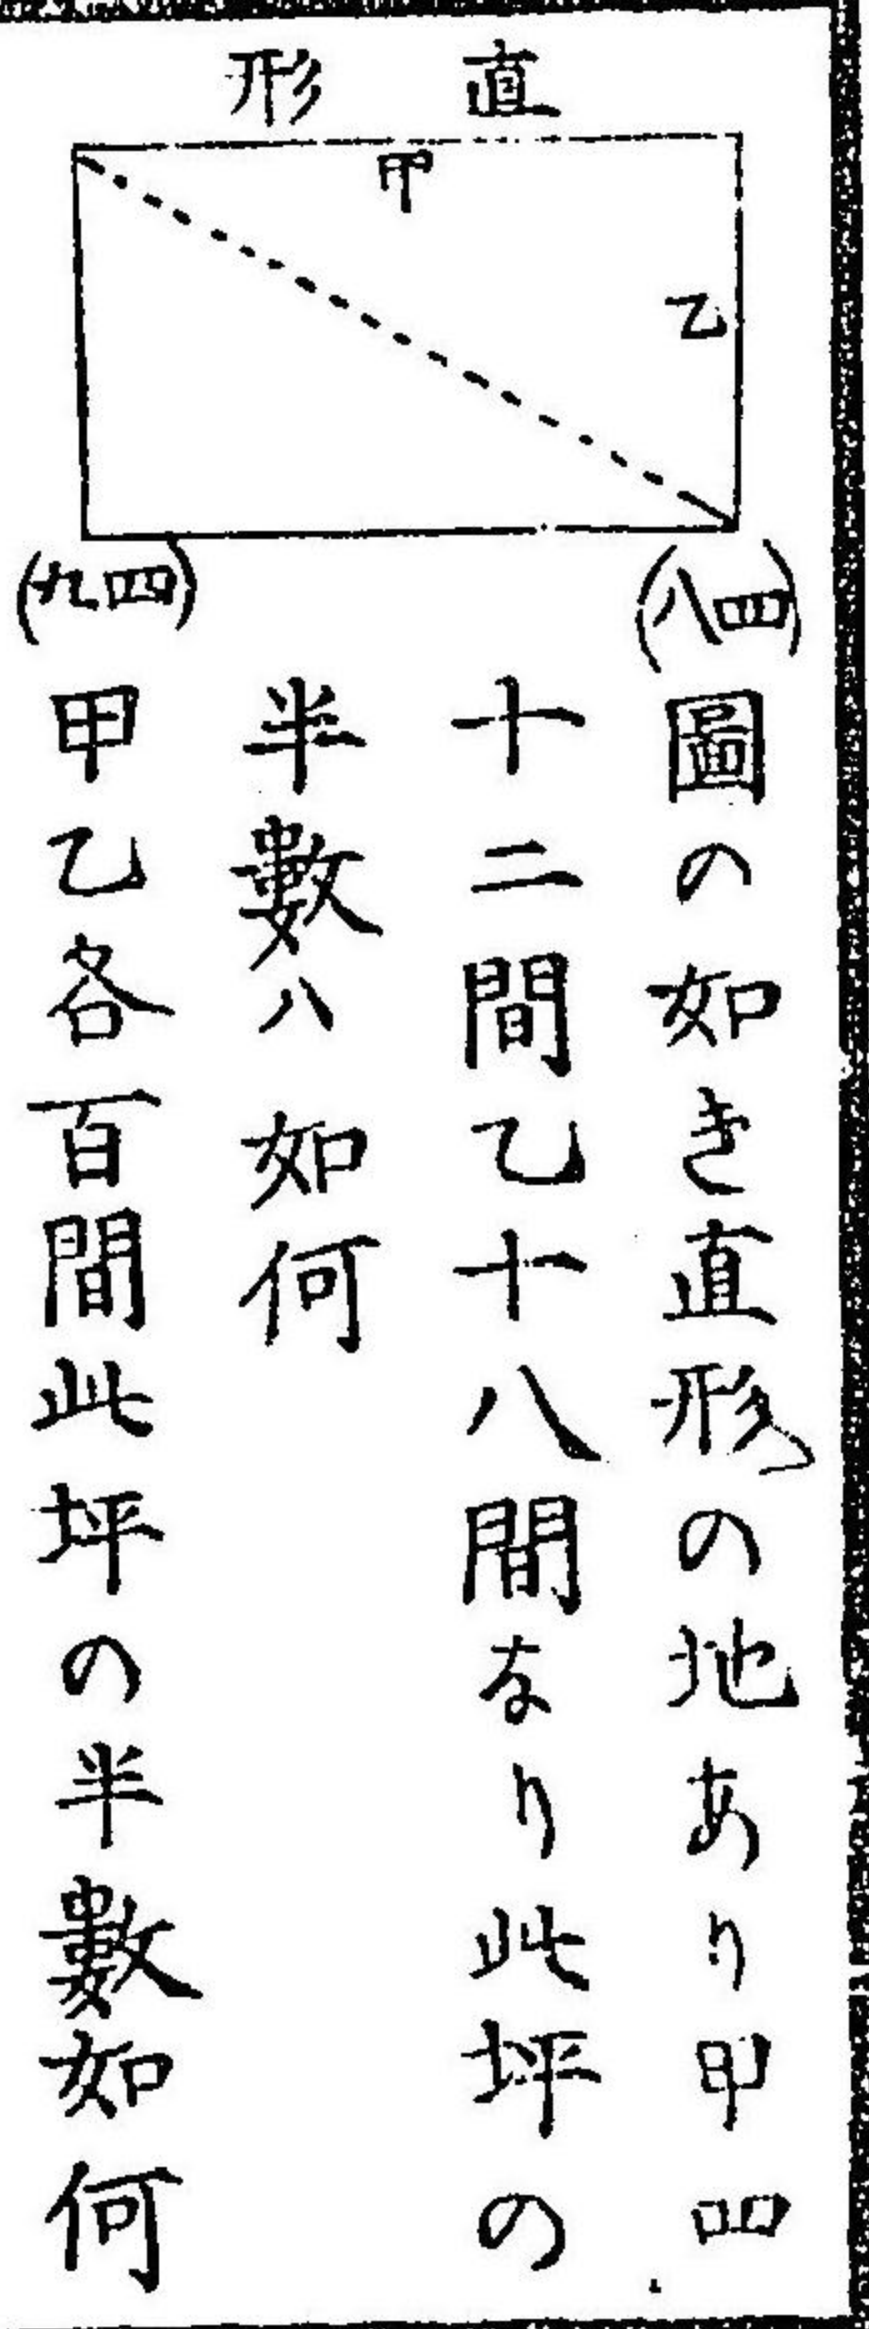 直形
甲
乙
(四八)
圖の如き直形の地あり甲四
十二間乙十八間なり此坪の
半數ハ如何
(四九)
甲乙各百間此坪の半數如何